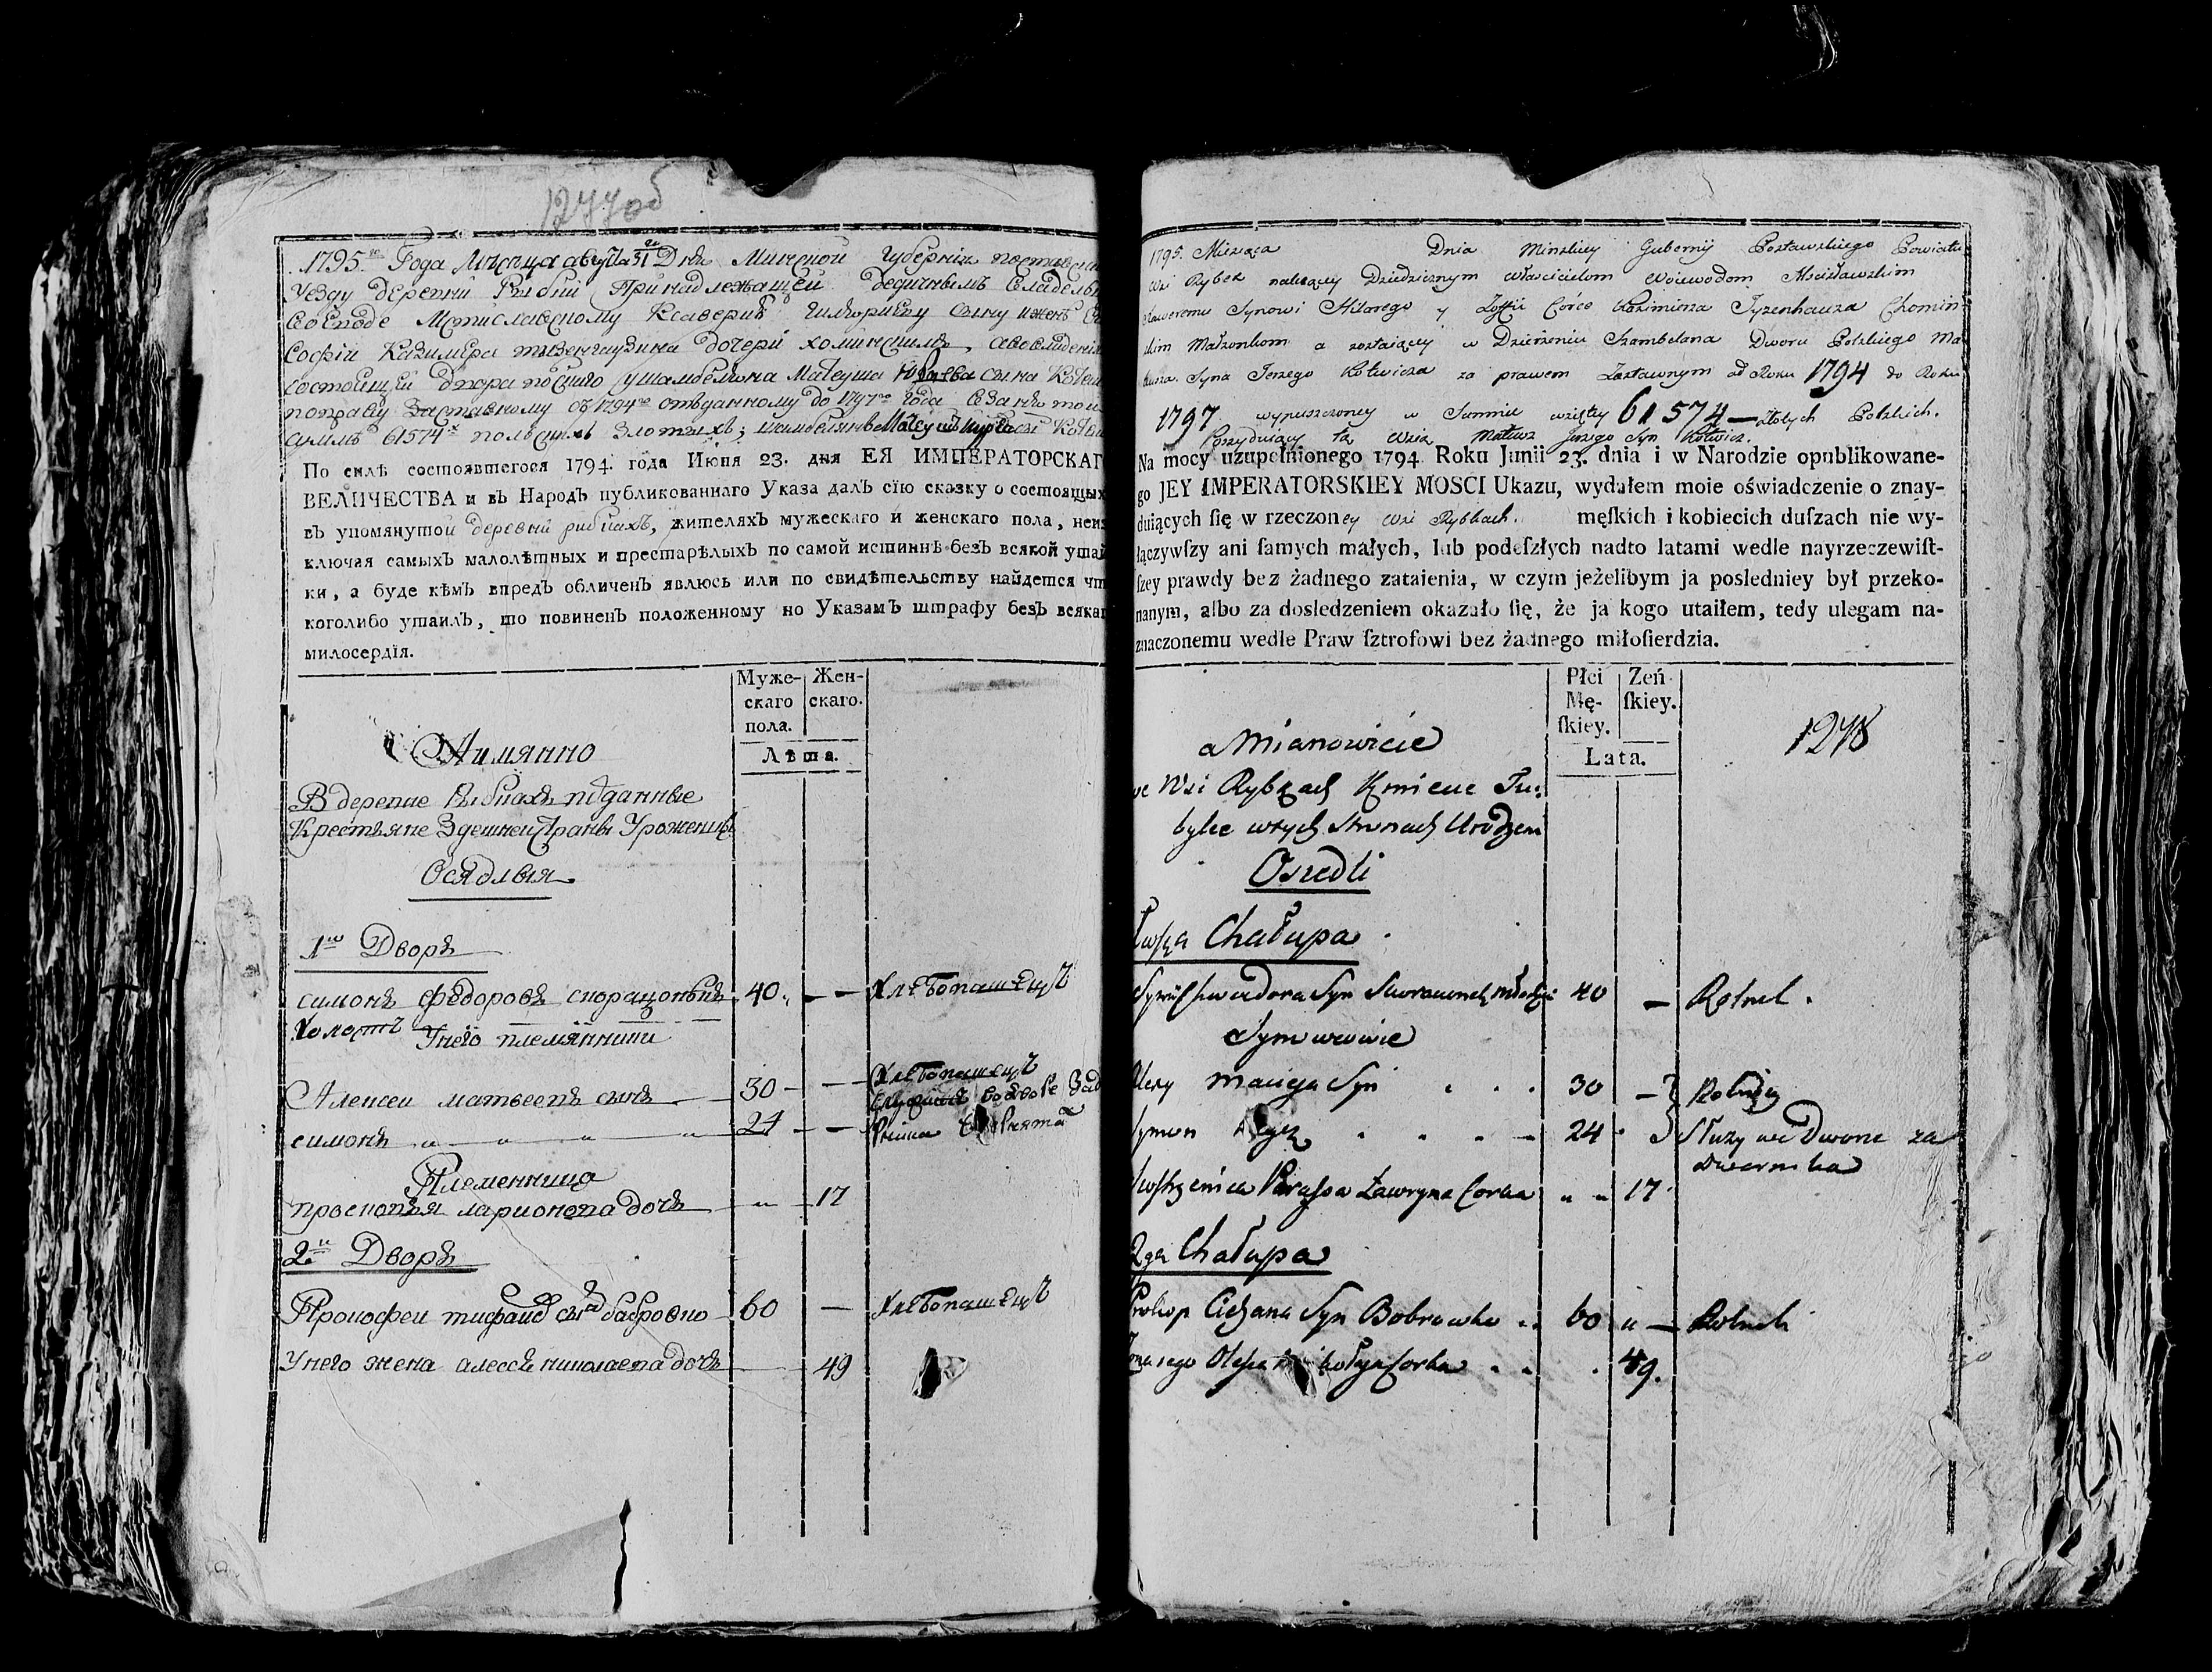 1277об
1795го Года Месяца августа 31 Дня Минской Губернии поставска
уезду деревни Рыбки Принадлежащей дедичнымъ владель
воеводе Мстиславскому Ксаверию Гиляриеву сыну и жене
Софiи Казимера тизенгаузина дочери хоминскимъ, а во владении
состоящей двора польского шамбеляна Матеуша Юрьева сына Котви
по праву заставному съ 1794го отъданному до 1797го года взаня той
сумме 61574х польскихъ злотыхъ;
По силѣ состоявшегося 1794. года Июня 23. дня ЕЯ ИМПЕРАТОРСКАГ
ВЕЛИЧЕСТВА и въ Народъ публикованнаго Указа далъ сїю сказку о состоящых
въ упомянутой деревни рибкахъ, жителяхъ мужескаго и женскаго пола, неиз
ключая самыхъ малолѣтныхъ и престарѣлыхъ по самой истиннѣ безъ всякой утай
ки, а буде кѣмъ впредъ обличенъ явлюсь или по свидѣтельству найдется чт
коголибо утаилъ, то повиненъ положенному по Указамъ штрафу безъ всякаг
милосердїя.
Муже- Жен-
скаго скаго.
пола.
Лѣта.
Аимянно
В деревне Рыбкахъ подданные
Крестьяне Здешней Страны Уроженцы
Осядлыя
1й Дворъ
симонъ федоровъ скорацонъкъ 40 — Хлебопашецъ
Холостъ Унего племянники
Алексеи матвеевъ сынъ 30 — Хлебопашецъ
симонъ „ „ „ „ 24 —
Племенница
просковья ларионова дочь „ 17
2й Дворъ
Прокофеи тихановъ сынъ бабровко 60 — Хлебопашецъ
Унего жена алесся николаева дочь 49
1795. Miesiąca Dnia Minskiey Gubernij Postawskiego Powiatu
wsi Rybek należący Dziedzicznym Właścicielom Woiewodom Mścisławskim
Xaweremu Synowi Hilarego y Zofii Córce Kazimierza Tyzenhauza Chomin-
skim Małżonkom a zostaiącey w Dzierżeniu Szambelana Dworu Polskiego Ma
teusza Syna Jerzego Kotwicza za prawem Zastawnym od Roku 1794 do Roku
1797 wypuszczoney w Summie wziętey 61574 — złotych Polskich.
Possyduiący tą Wsią Mateusz Jerzego Syn Kotwicz.
Na mocy uzupełnionego 1794 Roku Junii 23. dnia i w Narodzie opublikowane-
go JEY IMPERATORSKIEY MOSCI Ukazu, wydałem moie oświadczenie o znay-
duiących ſię w rzeczoney wsi Rybkach. męſkich i kobiecich duſzach nie wy-
łączywſzy ani ſamych małych, lub podeſzłych nadto latami wedle nayrzeczewiſt-
ſzey prawdy bez żadnego zataienia, w czym jeżelibym ja posledniey był przeko-
nanym, albo za dosledzeniem okazało ſię, że ja kogo utaiłem, tedy ulegam na-
znaczonemu wedle Praw ſztrofowi bez żadnego miłoſierdzia.
Płci Zeń-
Mę- ſkiey.
ſkiey.
Lata.
1278
a Mianowicie
we Wsi Rybkach Kmiecie Tu-
bylce w tych Stronach Urodzeni
Osiedli
1wsza Chałupa
Chwiedora Syn 40 — Rolnik.
Synowcowie
Alexy Macieja Syn 30 — Rolnicy
Symon tegoż 24 Służy we Dworze za
Dwornika
Siostrzenica Parasza Ławryna Corka „ „ 17
2ga Chałupa
Prokop Cichana Syn Bobrowko 60 „ — Rolnik
Żona iego Olesia Mikołaja Corka 49.